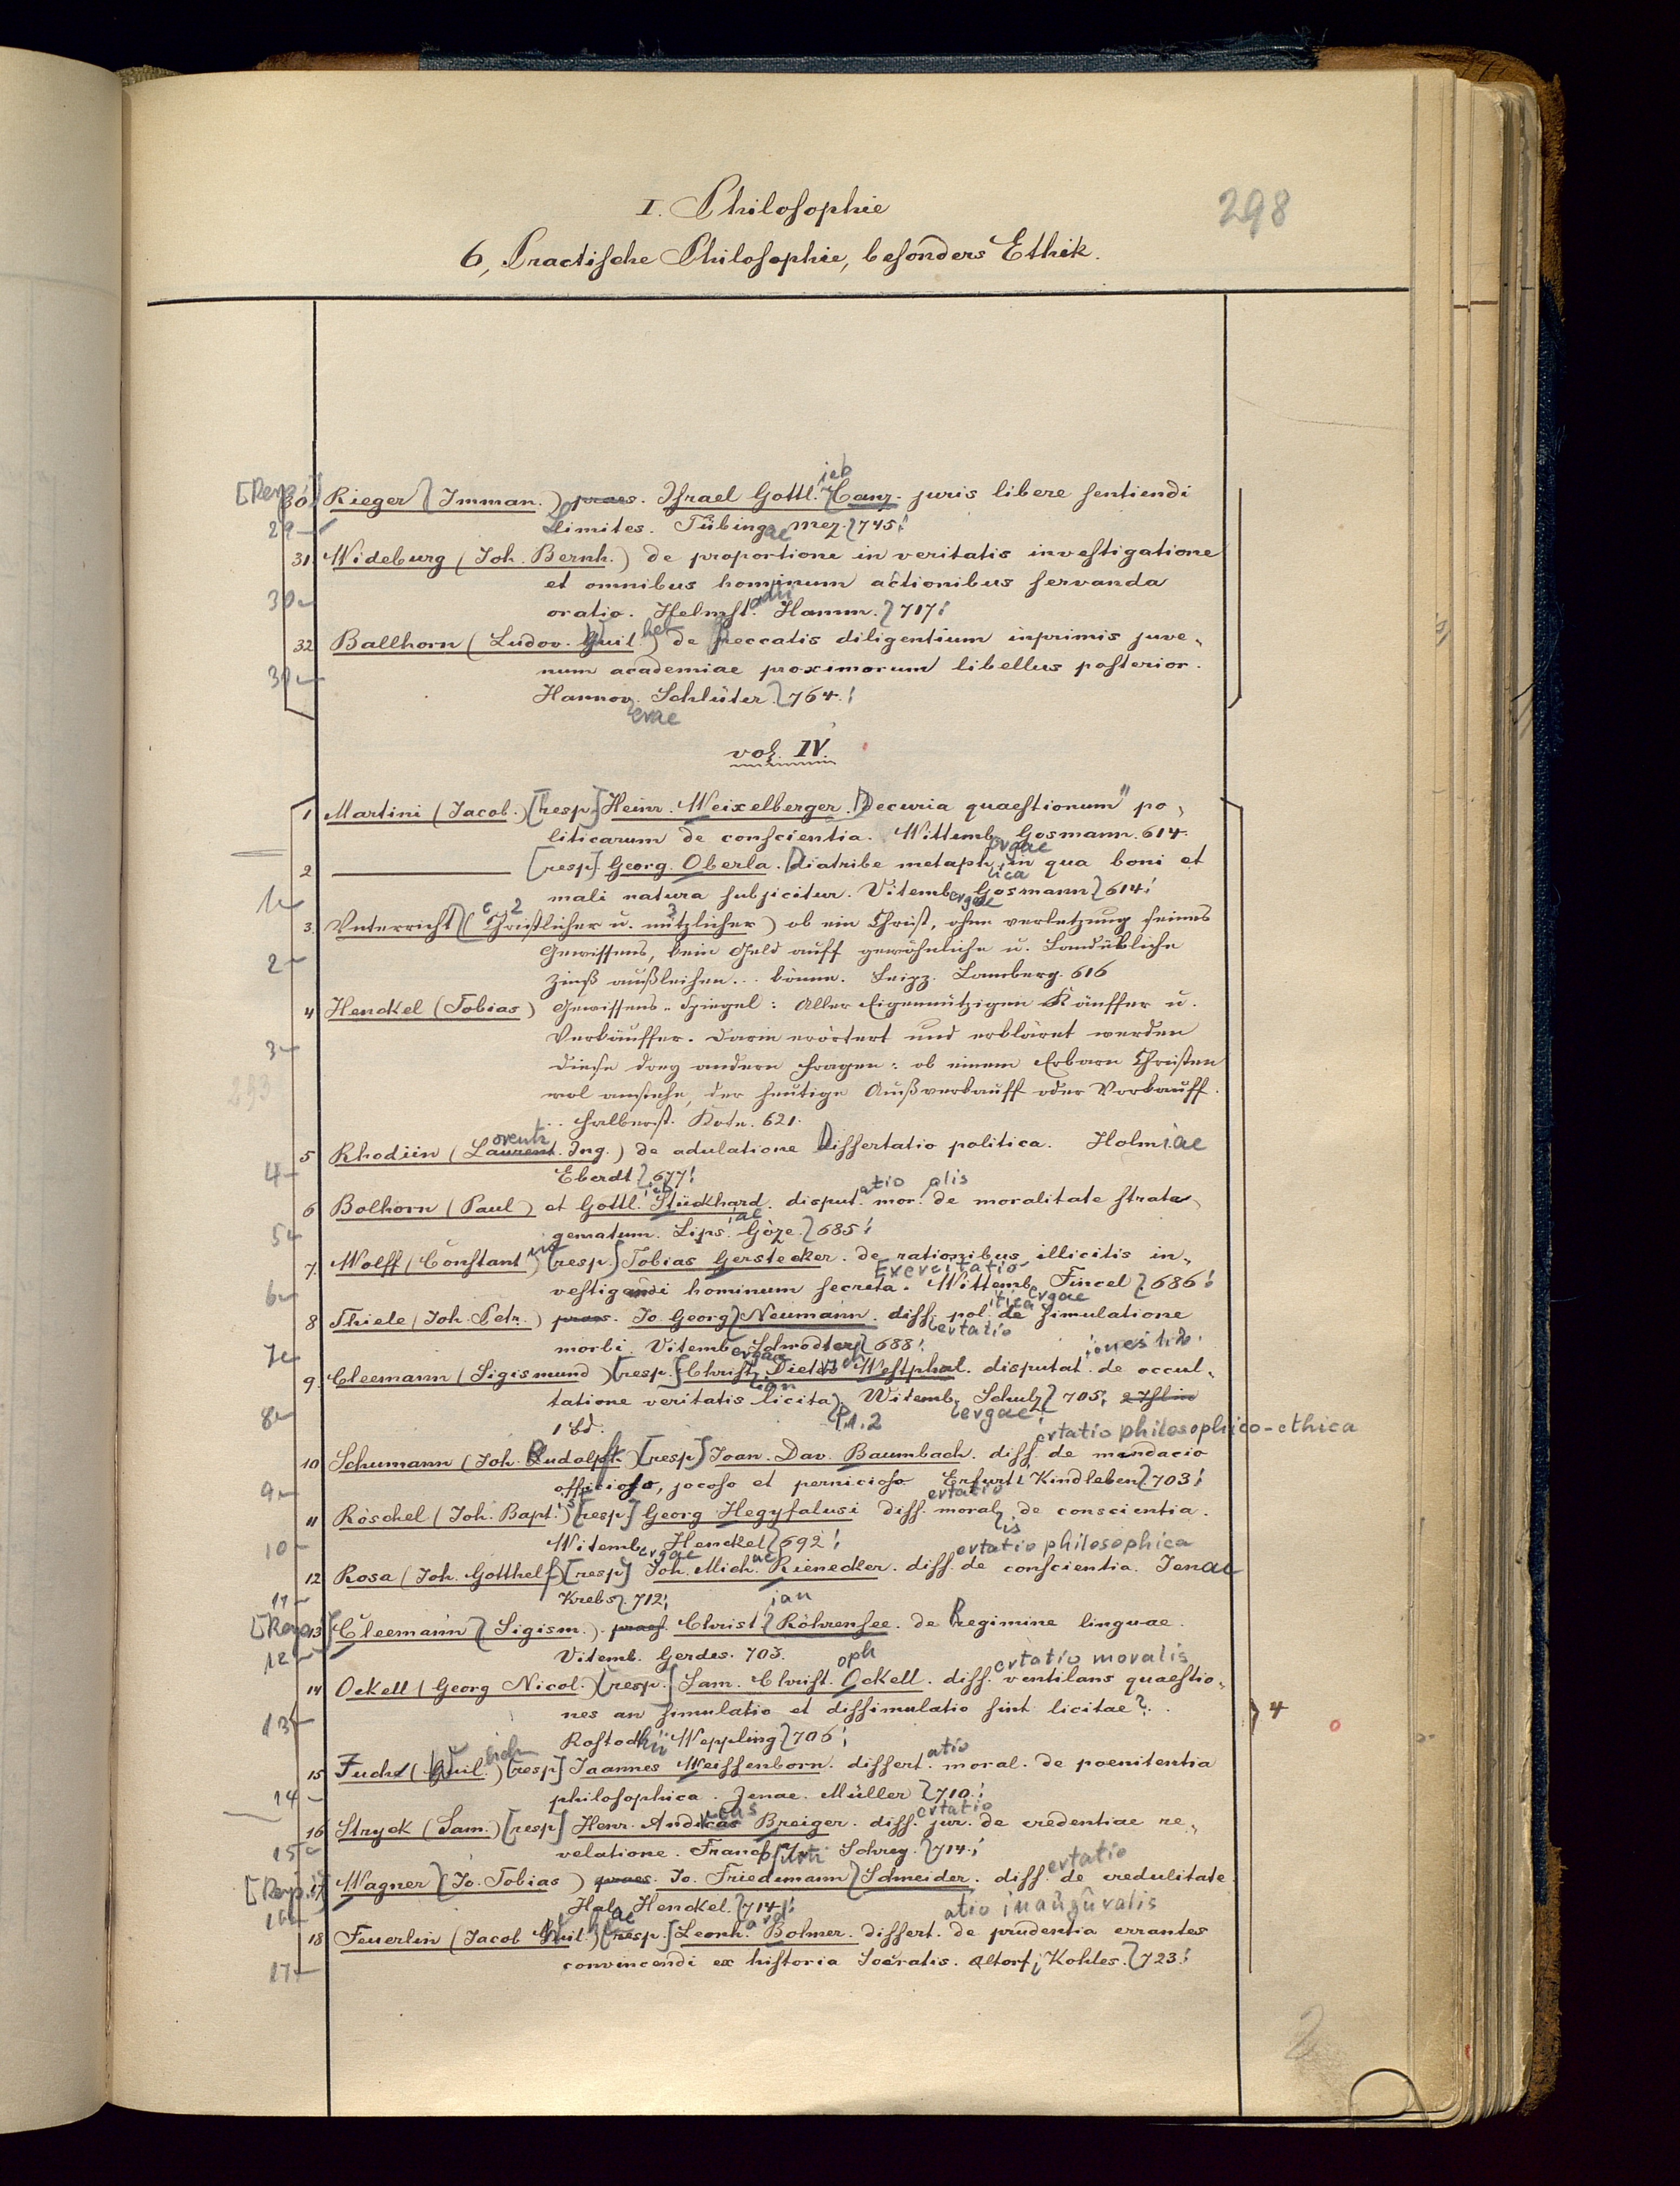 298
I. Philosophie
6, Practische Philosophie, besonders Ethik.
[Resp.] 30 Rieger (Imman.) praes. Israel Gottl.ieb Canz. juris libere sentiendi
29 limites. Tübingae Mez. 745.
31. Wideburg (Joh. Bernh.) de proportione in veritatis investigatione
et omnibus hominum actionibus servanda
30 oratio. Helmst.adii Hamm. 717.
32 Ballhorn (Ludov. Guil.) de peccatis diligentium inprimis juve-
num academiae proximorum libellus posterior.
31 Hannov.erae Schlüter. 764.
vol. IV.
1 Martini (Jacob.) [resp.] Heinr. Weixelberger. Decuria quaestionum po-
liticarum de conscientia. Wittembergae Gosmann. 614.
2 ——— [resp.] Georg. Oberla. Diatribe metaph.ica in qua boni et
1 mali natura subjicitur. Vitembergae Gosmann 614.
3. Unterricht (Christlicher u. nützlicher) ob ein Christ, ohne verletzung seines
2 Gewissens, sein Geld auff gewöhnliche u. Landübliche
Zinß außleihen... könne. Leipz. Lamberg. 616
4 Henckel (Tobias) Gewissens-Spiegel: Aller Eigennützigen Käuffer u.
Verkäuffer. Darin erörtert und erkläret werden
3 diese drey andern Fragen: ob einem Erbarn Christen
293 wol anstehe, der heutige Außverkauff oder Vorkauff.
.. Halberst. Kote. 621.
5 Rhodiin (Laurent. Ing.) de adulatione Dissertatio politica. Holmiae
4 Eberdt 677.
6 Bolhorn (Paul) et Gottl.ieb Stückhard. disput.atio mor.alis de moralitate strate-
5 gematum. Lips.iae Göze. 685.
7. Wolff (Constantin) [resp.] Tobias Gerstecker. de rationibus illicitis in-
6 vestigandi hominum secreta. Exercitatio Wittembergae Fincel 686.
8 Thiele (Joh. Petr.) praes. Jo. Georg Neumann. diss.ertatio pol.itica de simulatione
7 morbi. Vitembergae Schrödter 688.
9. Cleemann (Sigismund) [resp.] Christian Dietrich Westphal. disputationes de occul-
8 tatione veritatis licita P. 1. 2 Witembergae Schulz 705.
1 Bd.
10 Schumann (Joh. Rudolph) [resp.] Joan. Dav. Baumbach. diss.ertatio philosophico-ethica de mendacio
9 officioso, jocoso et pernicioso Erfurti Kindleben 703.
11 Röschel (Joh. Bapt.) [resp.] Georg Hegyfalusi diss.ertatio moralis de conscientia.
10 Witembergae Henckel 692.
12 Rosa (Joh. Gotthelf) [resp.] Joh. Mich. Rienecker. diss.ertatio philosophica de conscientia. Jenae
11 Krebs 712.
[Resp.] 13 Cleemann (Sigism.) praes. Christian Röhrensee. de Regimine linguae.
12 Vitemb. Gerdes. 703.
14 Ockell (Georg Nicol.) [resp.] Sam. Christoph Ockell. diss.ertatio moralis ventilans quaestio-
13 nes an simulatio et dissimulatio sint licitae? 4
Rostochii Weppling 706.
15 Fuchs (Guil.) [resp.] Joannes Weissenborn. dissert.atio moral. de poenitentia
14 philosophica. Jenae. Müller 710.
16 Stryck (Sam.) [resp.] Henr. Andreas Breiger. diss.ertatio jur. de credentiae re-
15 velatione. Francofurti Schrey. 714.
[Resp.] 17 Wagner (Jo. Tobias) praes. Jo. Friedemann Schneider. diss.ertatio de credulitate.
16 Halae Henckel. 714.
18 Feuerlin (Jacob Guil.) [resp.] Leonhard Bolmer. dissert.atio inauguralis de prudentia errantes
17 convincendi ex historia Socratis. Altorfi Kohles. 723.
2